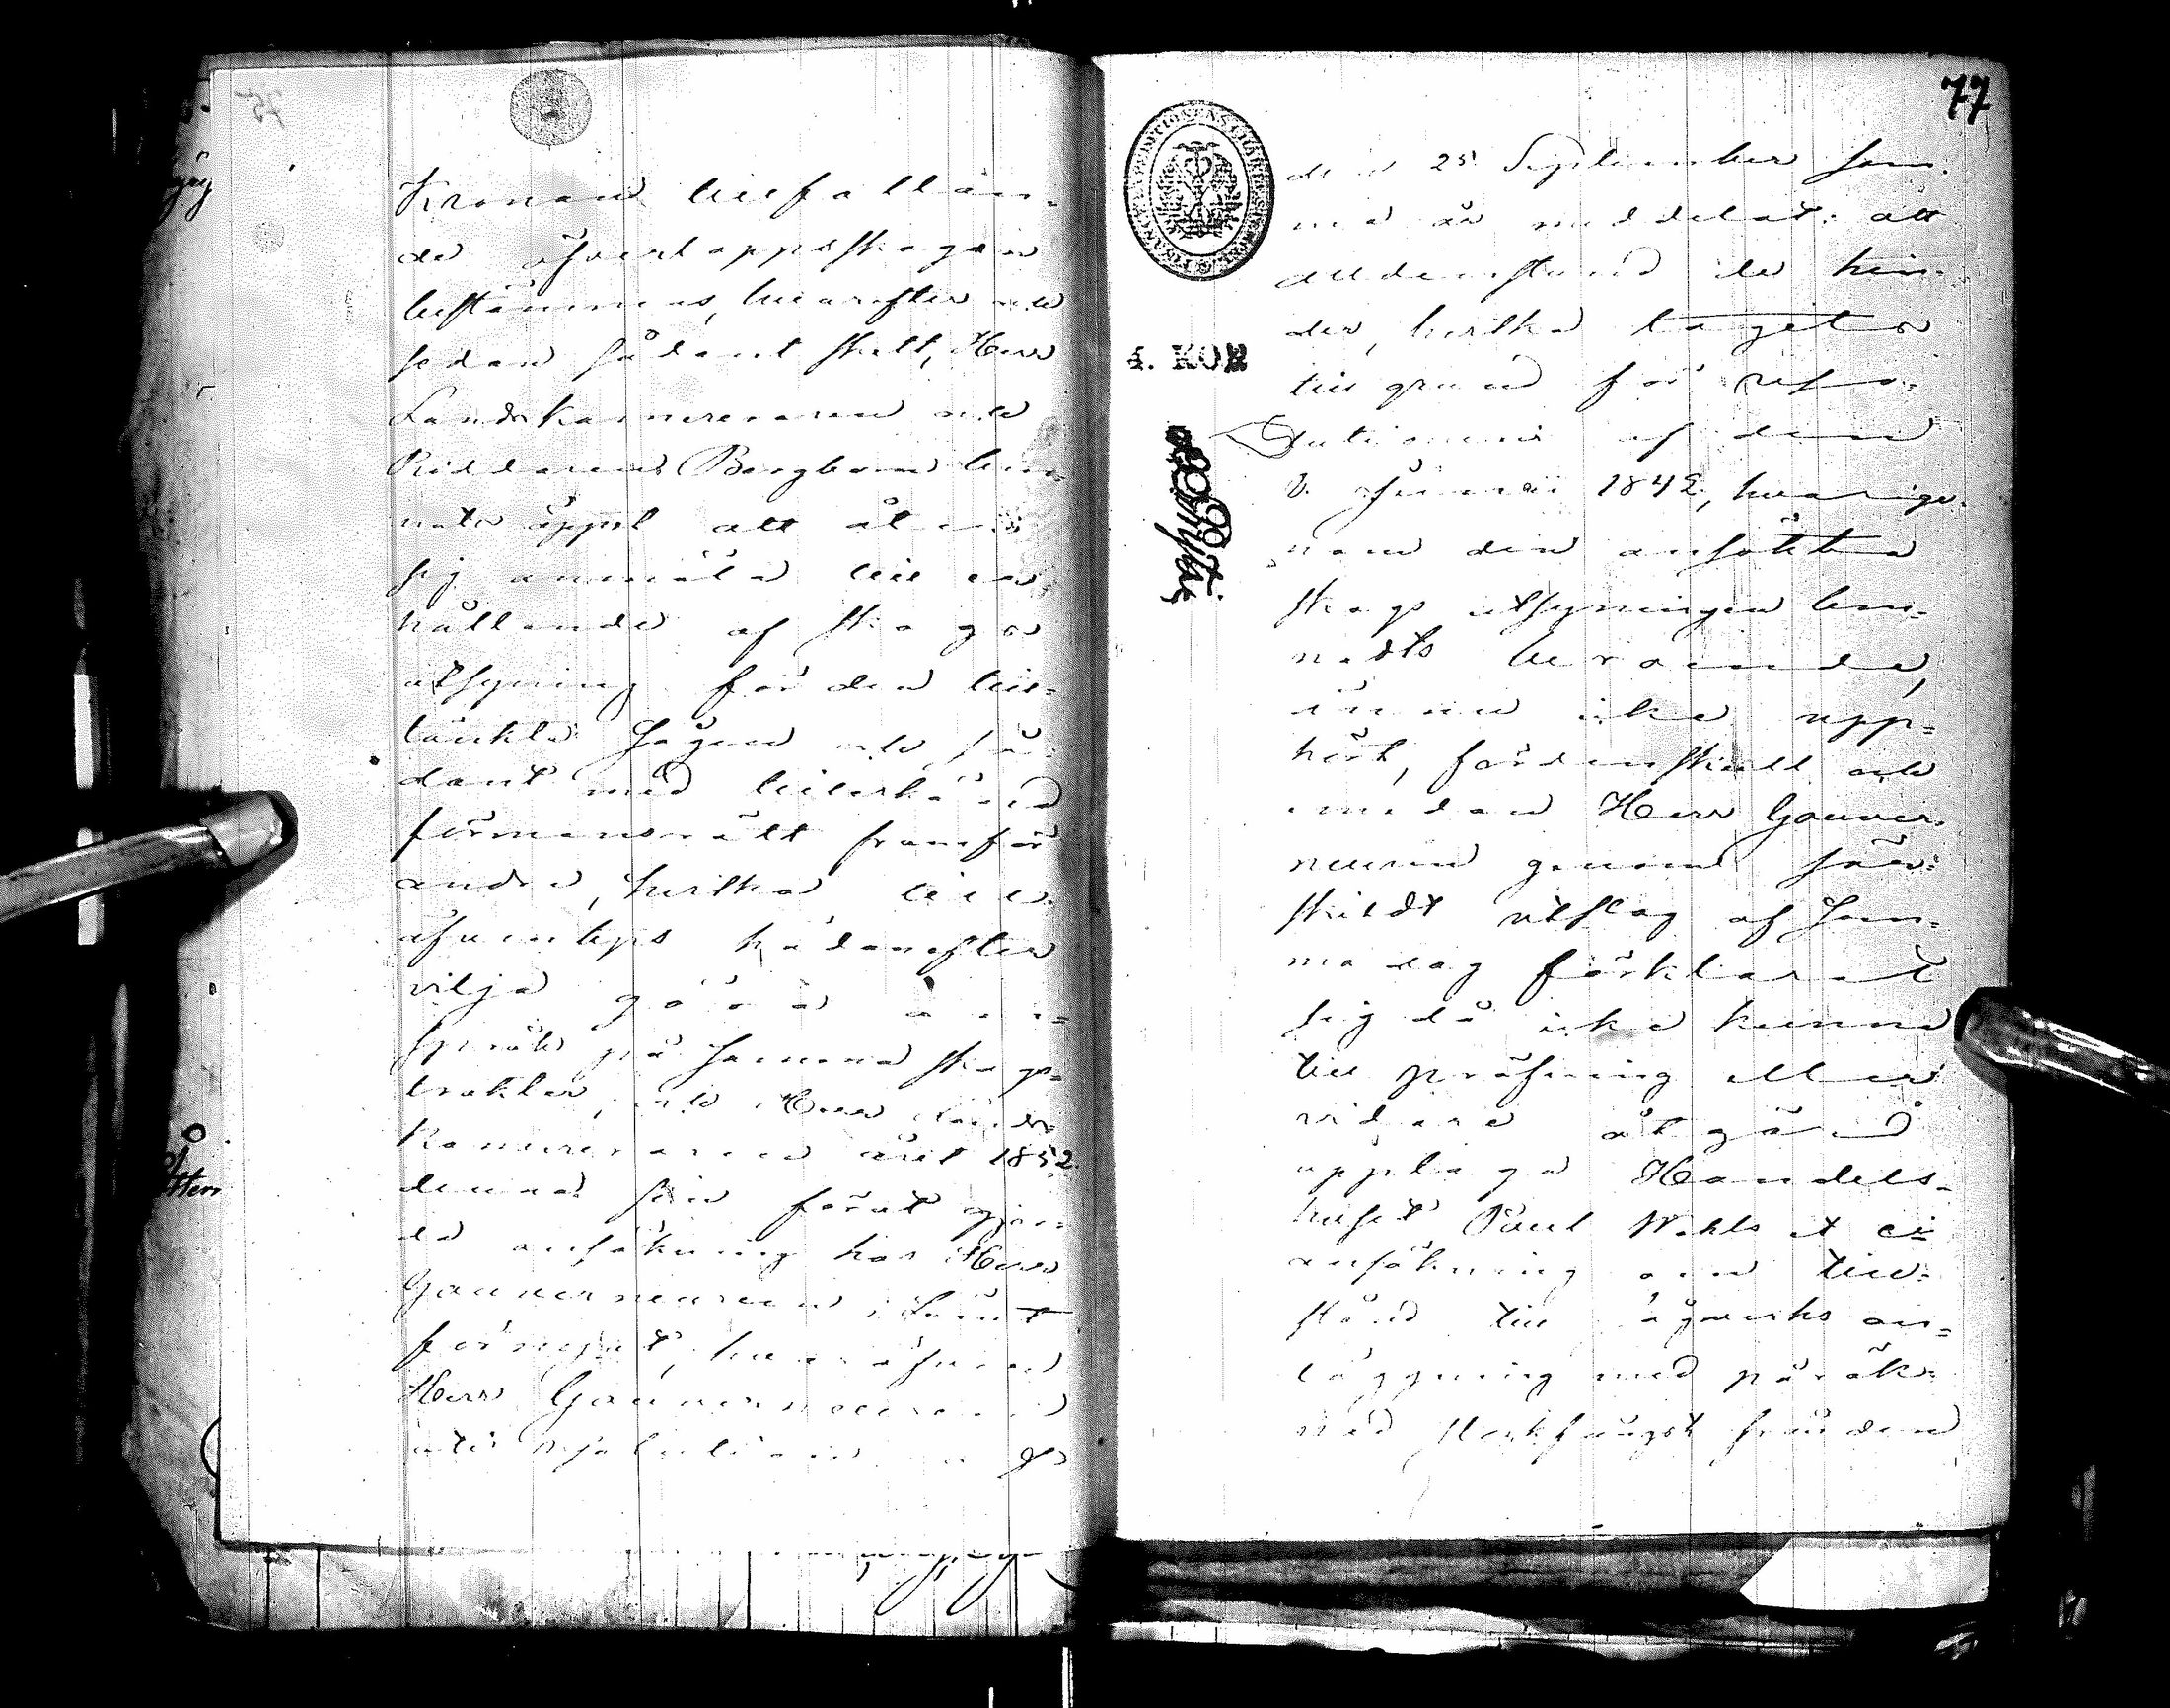 Kronan tillfallan-
de öfverloppsskogen
bestämmas, hvarefter och
sedan sådant skett, Herr
Landskamereraren och
Riddaren Bergbom lem-
nats öppet att åter
sig anmäla till er
hållande af skogs
utsyning för den till-
tänkta Sågen och så-
dant med bibehållen
förmonsrätt framför
andra, hvilka till
äfventyrs hädanefter
vilja göra an-
språk på samma skogs-
trakter, och Herr Lands-
kamereraren året 1852
denna sin förut gjor-
da ansökning hos Herr
Gouverneuren i Länet
förnyat, hvaröfver
Herr Gouverneuren
uti resolution af
77
den 25 September sam-
ma år meddelat: att
alldenstund de hin-
der, hvilka tagits
till grund för reso-
lutionen af den
3 Januari 1842, hvarige-
nom den ansökta
skogs utsyningen lem-
nats beroende,
ännu icke upp-
hört, fördenskull och
emedan Herr Gouver-
neuren genom sär-
skildt utslag af sam-
ma dag förklarat
sig då icke kunna
till pröfning eller
vidare åtgärd
upptaga Handels-
huset Paul Wahls et Co
ansökning om till-
stånd till sågverks an-
läggning med påräk-
nad stockfångst från den
4. KOP